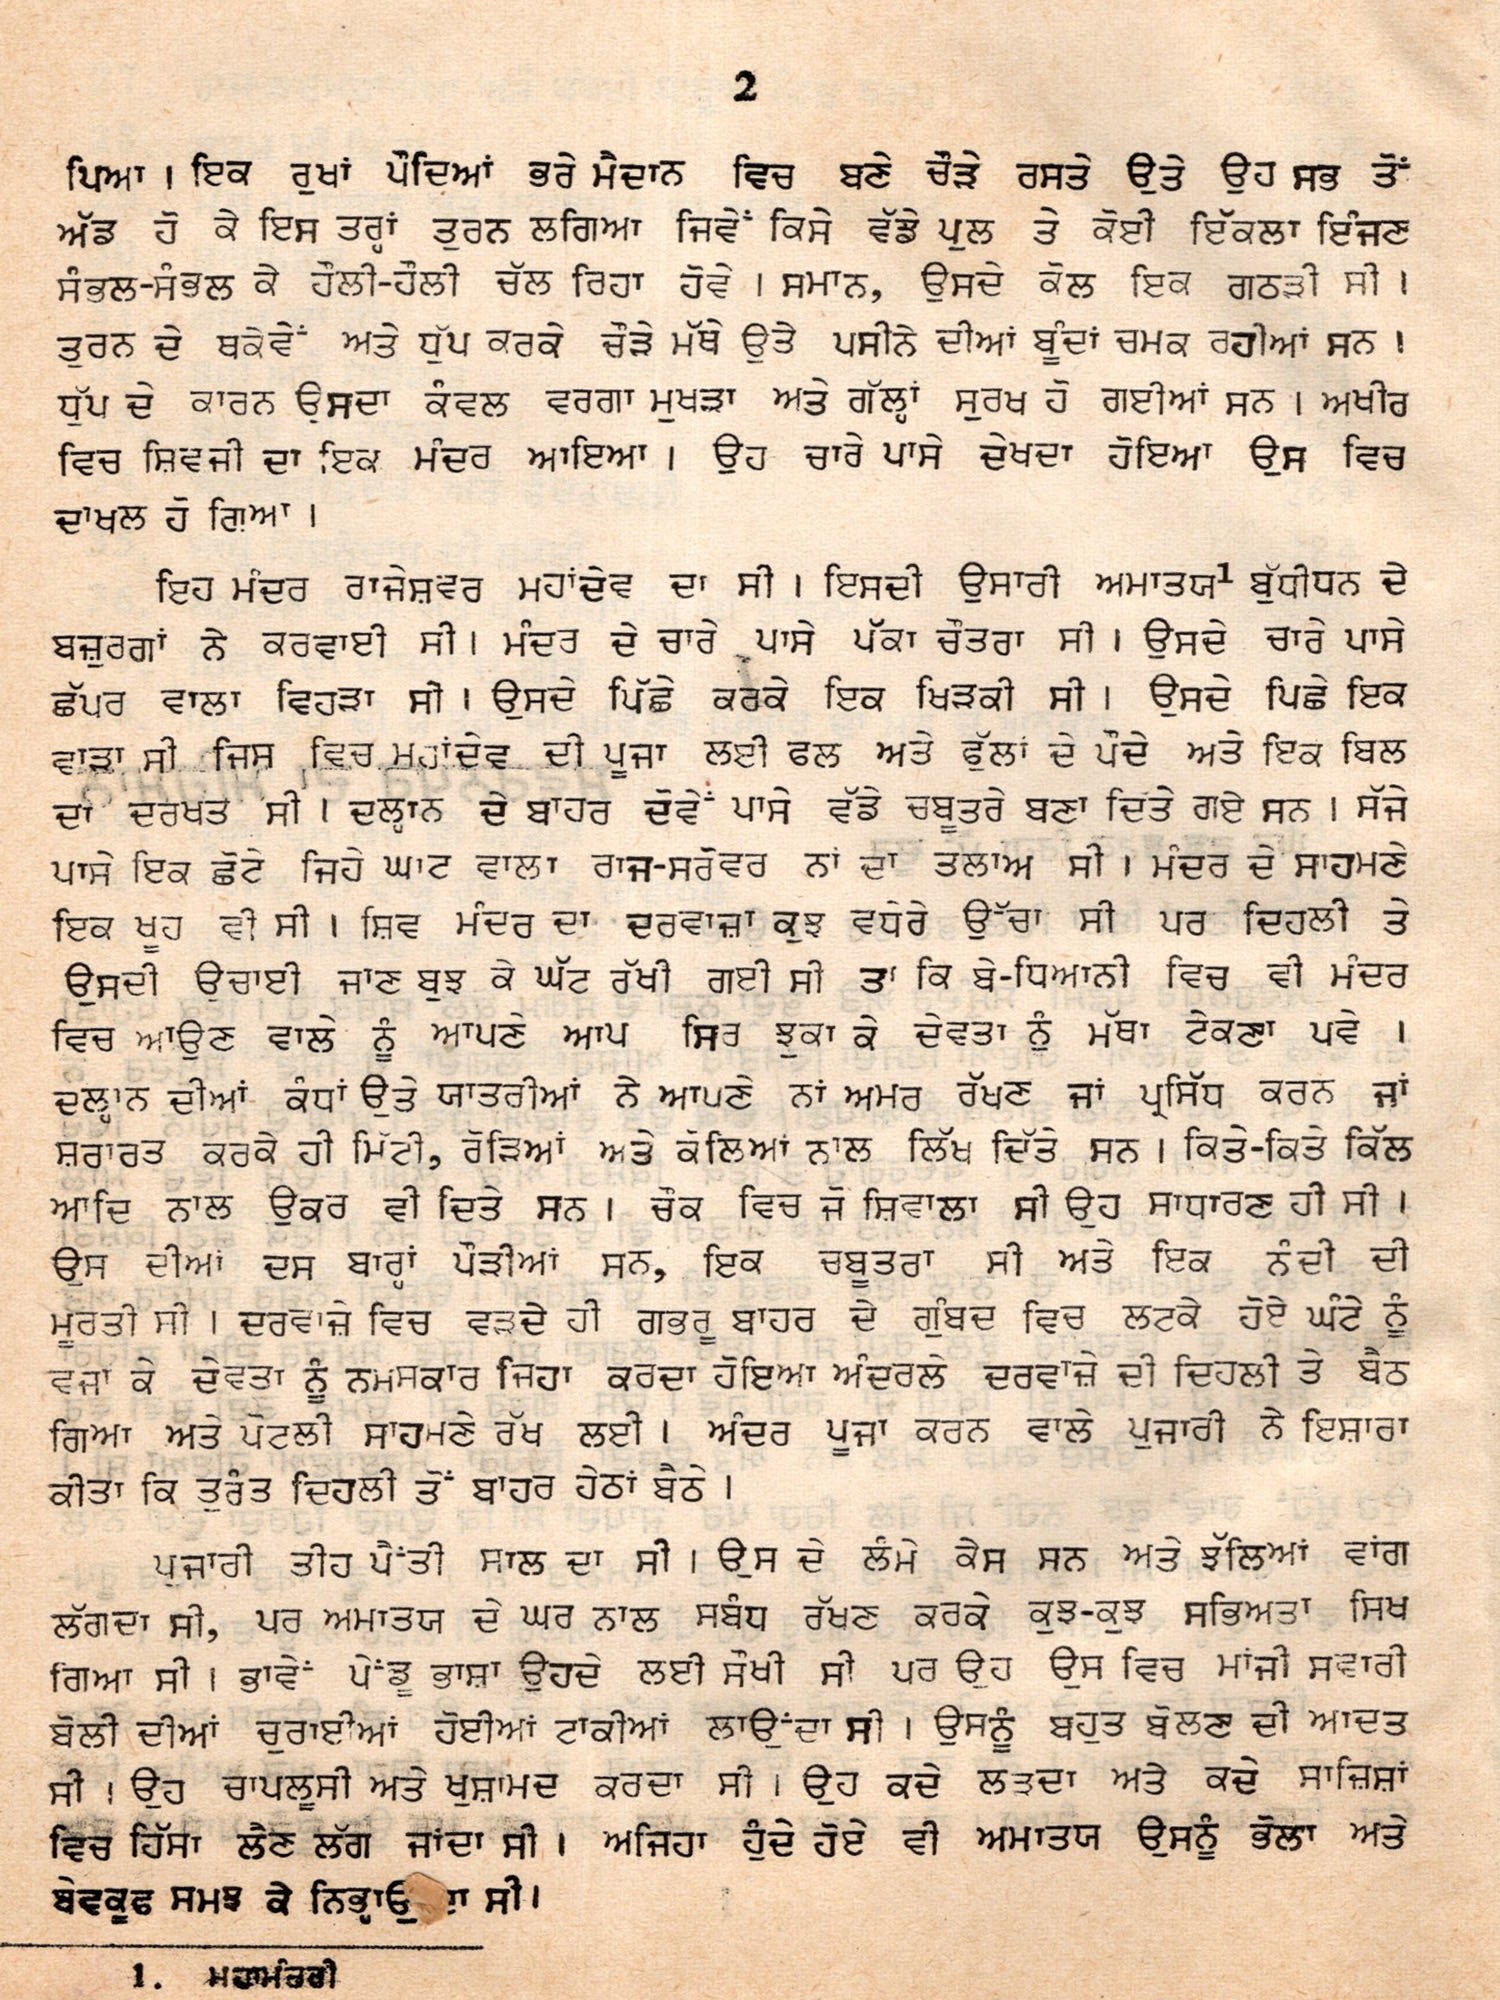 2
ਪਿਆ । ਇਕ ਰੁਖਾਂ ਪੌਦਿਆਂ ਭਰੇ ਮੈਦਾਨ ਵਿਚ ਬਣੇ ਚੌੜੇ ਰਸਤੇ ਉਤੇ ਉਹ ਸਭ ਤੋਂ
ਅੱਡ ਹੋ ਕੇ ਇਸ ਤਰ੍ਹਾਂ ਤੁਰਨ ਲਗਿਆ ਜਿਵੇਂ ਕਿਸੇ ਵੱਡੇ ਪੁਲ ਤੇ ਕੋਈ ਇੱਕਲਾ ਇੰਜਣ
ਸੰਭਲ-ਸੰਭਲ ਕੇ ਹੌਲੀ-ਹੌਲੀ ਚੱਲ ਰਿਹਾ ਹੋਵੇ । ਸਮਾਨ, ਉਸਦੇ ਕੋਲ ਇਕ ਗਠੜੀ ਸੀ ।
ਤੁਰਨ ਦੇ ਥਕੇਵੇਂ ਅਤੇ ਧੁੱਪ ਕਰਕੇ ਚੌੜੇ ਮੱਥੇ ਉਤੇ ਪਸੀਨੇ ਦੀਆਂ ਬੂੰਦਾਂ ਚਮਕ ਰਹੀਆਂ ਸਨ ।
ਧੁੱਪ ਦੇ ਕਾਰਨ ਉਸਦਾ ਕੰਵਲ ਵਰਗਾ ਮੁਖੜਾ ਅਤੇ ਗੱਲ੍ਹਾਂ ਸੁਰਖ ਹੋ ਗਈਆਂ ਸਨ । ਅਖੀਰ
ਵਿਚ ਸ਼ਿਵਜੀ ਦਾ ਇਕ ਮੰਦਰ ਆਇਆ । ਉਹ ਚਾਰੇ ਪਾਸੇ ਦੇਖਦਾ ਹੋਇਆ ਉਸ ਵਿਚ
ਦਾਖਲ ਹੋ ਗਿਆ ।
ਇਹ ਮੰਦਰ ਰਾਜੇਸ਼ਵਰ ਮਹਾਂਦੇਵ ਦਾ ਸੀ । ਇਸਦੀ ਉਸਾਰੀ ਅਮਾਤਯ¹ ਬੁੱਧੀਧਨ ਦੇ
ਬਜ਼ੁਰਗਾਂ ਨੇ ਕਰਵਾਈ ਸੀ । ਮੰਦਰ ਦੇ ਚਾਰੇ ਪਾਸੇ ਪੱਕਾ ਚੌਤਰਾ ਸੀ । ਉਸਦੇ ਚਾਰੇ ਪਾਸੇ
ਛੱਪਰ ਵਾਲਾ ਵਿਹੜਾ ਸੀ । ਉਸਦੇ ਪਿੱਛੇ ਕਰਕੇ ਇਕ ਖਿੜਕੀ ਸੀ । ਉਸਦੇ ਪਿਛੇ ਇਕ
ਵਾੜਾ ਸੀ ਜਿਸ ਵਿਚ ਮਹਾਂਦੇਵ ਦੀ ਪੂਜਾ ਲਈ ਫਲ ਅਤੇ ਫੁੱਲਾਂ ਦੇ ਪੌਦੇ ਅਤੇ ਇਕ ਬਿਲ
ਦਾ ਦਰਖਤ ਸੀ । ਦਲ੍ਹਾਨ ਦੇ ਬਾਹਰ ਦੋਵੇਂ ਪਾਸੇ ਵੱਡੇ ਚਬੂਤਰੇ ਬਣਾ ਦਿਤੇ ਗਏ ਸਨ । ਸੱਜੇ
ਪਾਸੇ ਇਕ ਛੋਟੇ ਜਿਹੇ ਘਾਟ ਵਾਲਾ ਰਾਜ-ਸਰੋਵਰ ਨਾਂ ਦਾ ਤਲਾਅ ਸੀ । ਮੰਦਰ ਦੇ ਸਾਹਮਣੇ
ਇਕ ਖੂਹ ਵੀ ਸੀ । ਸ਼ਿਵ ਮੰਦਰ ਦਾ ਦਰਵਾਜ਼ਾ ਕੁਝ ਵਧੇਰੇ ਉੱਚਾ ਸੀ ਪਰ ਦਿਹਲੀ ਤੇ
ਉਸਦੀ ਉਚਾਈ ਜਾਣ ਬੁਝ ਕੇ ਘੱਟ ਰੱਖੀ ਗਈ ਸੀ ਤਾ ਕਿ ਬੇ-ਧਿਆਨੀ ਵਿਚ ਵੀ ਮੰਦਰ
ਵਿਚ ਆਉਣ ਵਾਲੇ ਨੂੰ ਆਪਣੇ ਆਪ ਸਿਰ ਝੁਕਾ ਕੇ ਦੇਵਤਾ ਨੂੰ ਮੱਥਾ ਟੇਕਣਾ ਪਵੇ ।
ਦਲ੍ਹਾਨ ਦੀਆਂ ਕੰਧਾਂ ਉਤੇ ਯਾਤਰੀਆਂ ਨੇ ਆਪਣੇ ਨਾਂ ਅਮਰ ਰੱਖਣ ਜਾਂ ਪ੍ਰਸਿੱਧ ਕਰਨ ਜਾਂ
ਸ਼ਰਾਰਤ ਕਰਕੇ ਹੀ ਮਿੱਟੀ, ਰੋੜਿਆਂ ਅਤੇ ਕੋਲਿਆਂ ਨਾਲ ਲਿੱਖ ਦਿੱਤੇ ਸਨ । ਕਿਤੇ-ਕਿਤੇ ਕਿੱਲ
ਆਦਿ ਨਾਲ ਉਕਰ ਵੀ ਦਿਤੇ ਸਨ । ਚੌਕ ਵਿਚ ਜੋ ਸ਼ਿਵਾਲਾ ਸੀ ਉਹ ਸਾਧਾਰਣ ਹੀ ਸੀ ।
ਉਸ ਦੀਆਂ ਦਸ ਬਾਰ੍ਹਾਂ ਪੌੜੀਆਂ ਸਨ, ਇਕ ਚਬੂਤਰਾ ਸੀ ਅਤੇ ਇਕ ਨੰਦੀ ਦੀ
ਮੂਰਤੀ ਸੀ । ਦਰਵਾਜ਼ੇ ਵਿਚ ਵੜਦੇ ਹੀ ਗਭਰੂ ਬਾਹਰ ਦੇ ਗੁੰਬਦ ਵਿਚ ਲਟਕੇ ਹੋਏ ਘੰਟੇ ਨੂੰ
ਵਜਾ ਕੇ ਦੇਵਤਾ ਨੂੰ ਨਮਸਕਾਰ ਜਿਹਾ ਕਰਦਾ ਹੋਇਆ ਅੰਦਰਲੇ ਦਰਵਾਜ਼ੇ ਦੀ ਦਿਹਲੀ ਤੇ ਬੈਠ
ਗਿਆ ਅਤੇ ਪੋਟਲੀ ਸਾਹਮਣੇ ਰੱਖ ਲਈ । ਅੰਦਰ ਪੂਜਾ ਕਰਨ ਵਾਲੇ ਪੁਜਾਰੀ ਨੇ ਇਸ਼ਾਰਾ
ਕੀਤਾ ਕਿ ਤੁਰੰਤ ਦਿਹਲੀ ਤੋਂ ਬਾਹਰ ਹੇਠਾਂ ਬੈਠੇ ।
ਪੁਜਾਰੀ ਤੀਹ ਪੈਂਤੀ ਸਾਲ ਦਾ ਸੀ । ਉਸ ਦੇ ਲੰਮੇ ਕੇਸ ਸਨ ਅਤੇ ਝੱਲਿਆਂ ਵਾਂਗ
ਲੱਗਦਾ ਸੀ, ਪਰ ਅਮਾਤਯ ਦੇ ਘਰ ਨਾਲ ਸਬੰਧ ਰੱਖਣ ਕਰਕੇ ਕੁਝ-ਕੁਝ ਸਭਿਅਤਾ ਸਿਖ
ਗਿਆ ਸੀ । ਭਾਵੇਂ ਪੇਂਡੂ ਭਾਸ਼ਾ ਉਹਦੇ ਲਈ ਸੌਖੀ ਸੀ ਪਰ ਉਹ ਉਸ ਵਿਚ ਮਾਂਜੀ ਸਵਾਰੀ
ਬੋਲੀ ਦੀਆਂ ਚੁਰਾਈਆਂ ਹੋਈਆਂ ਟਾਕੀਆਂ ਲਾਉਂਦਾ ਸੀ । ਉਸਨੂੰ ਬਹੁਤ ਬੋਲਣ ਦੀ ਆਦਤ
ਸੀ । ਉਹ ਚਾਪਲੂਸੀ ਅਤੇ ਖੁਸ਼ਾਮਦ ਕਰਦਾ ਸੀ । ਉਹ ਕਦੇ ਲੜਦਾ ਅਤੇ ਕਦੇ ਸਾਜ਼ਿਸ਼ਾਂ
ਵਿਚ ਹਿੱਸਾ ਲੈਣ ਲੱਗ ਜਾਂਦਾ ਸੀ । ਅਜਿਹਾ ਹੁੰਦੇ ਹੋਏ ਵੀ ਅਮਾਤਯ ਉਸਨੂੰ ਭੋਲਾ ਅਤੇ
ਬੇਵਕੂਫ ਸਮਝ ਕੇ ਨਿਭ੍ਹਾਉਂਦਾ ਸੀ।
1. ਮਹਾਮੰਤਰੀ